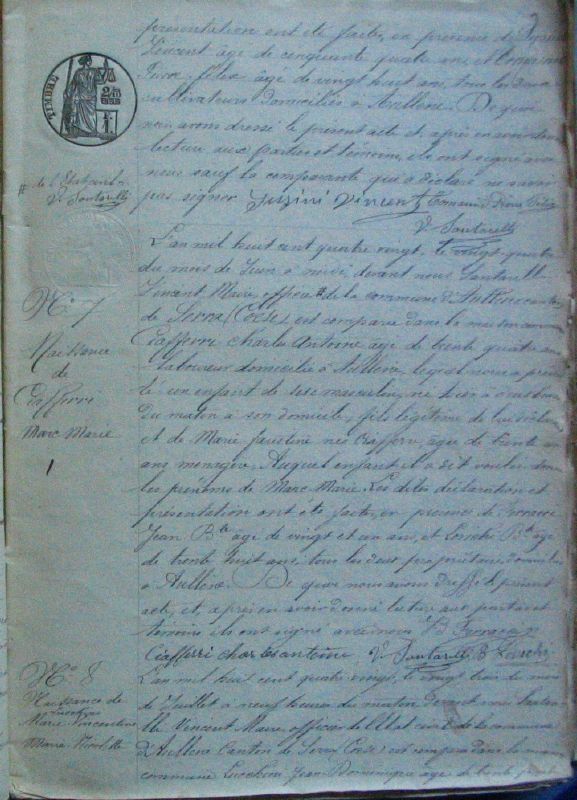 présentation ont été faites, en présence de
Vincent âgé de cinquante quatre ans et
âgé de vingt huit ans, tous les deux
cultivateurs domiciliés à Aullene. De quoi
nous avons dressé le présent acte et, après en avoir donné
lecture aux parties et témoins, ils ont signé avec
nous sauf la comparante qui a déclaré ne savoir
pas signer Vincent
V. Santarelli
TIMBRE
25
# de l'Etat civil
V. Santarelli
L'an mil huit cent quatre vingt, le vingt quatre
du mois de Juin à midi, devant nous Santarelli
Vincent Maire, officier # de la commune d'Aullene canton
de Serra (Corse) est comparu dans la maison commune
Ciafferri Charles Antoine âgé de trente quatre ans
laboureur domicilié à Aullene lequel nous a présen
té un enfant de sexe masculin, né hier à onze heures
du matin à son domicile, fils légitime de lui déclarant
et de Marie née Ciafferri, âgée de trente
ans ménagère. Auquel enfant il a dit vouloir donner
les prénoms de Marc Marie. Les dites déclaration et
présentation ont été faites, en présence de
Jean Bte âgé de vingt et un ans, et Bte âgé
de trente huit ans, tous les deux propriétaires domiciliés
à Aullene. De quoi nous avons dressé le présent
acte, et, après en avoir donné lecture aux parties et
témoins ils ont signé avec nous
Ciafferri charles antoine V. Santarelli B
N° 7
Naissance
de
Ciafferri
Marc Marie
1
L'an mil huit cent quatre vingt, le vingt trois du mois
de Juillet à neuf heures du matin devant nous Santa
relli Vincent Maire officier de l'Etat civil de la commune
d'Aullene Canton de Serra (Corse) est comparu dans la maison
commune Lucchini Jean Dominique âgé de trente
N° 8
Naissance de
Lucchini
Marie
Marie